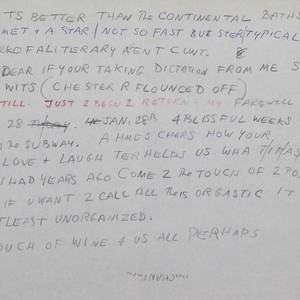 TS BETTER THAN THE CONTINENTAL BATHS
MET + A STAR / NOT SO FAST BUT STERTYPICAL
FALITERARY KENT CUNT.
DEAR IF YOUR TAKING DICTATION FROM ME S
WITS (CHESTER R FLOUNCED OFF)
TILL. JUST 2 BEGN 2 RETURN + MY FAREWELL
28 JAN. 28TH 4 BLISSFUL WEEKS
THE SUBWAY. CHEERS HOW YOUR,
LOVE + LAUGHTER HELDS US.
I HAD YEARS AGO COME 2 THE TOUCH OF 2
IF U WANT 2 CALL ALL THIS ORGASTIC IT
TLEAST UNORGANIZED.
OUCH OF WINE 4 US ALL PERHAPS